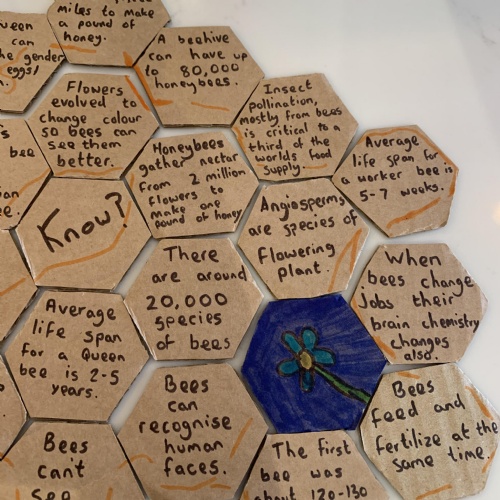 miles to make
a pound of
honey.
A beehive
can have up
to 80,000
honeybees.
can
the gender
eggs!
Flowers
evolved to
change colour
so bees can
see them
better.
Insect
pollination,
mostly from bees
is critical to a
third of the
worlds food
supply.
Honeybees
gather nectar
from 2 million
flowers to
make one
pound of honey
Average
life span for
a worker bee is
5-7 weeks.
bee
Know?
Angiosperms
are species of
flowering
plant.
There
are around
20,000
species
of bees
When
bees change
Jobs their
brain chemistry
changes
also.
Average
life span
for a Queen
bee is 2-5
years.
Bees
can
recognise
human
faces.
Bees
feed and
fertilize at the
same time.
Bees
can't
see
The first
bee was
about 120-130